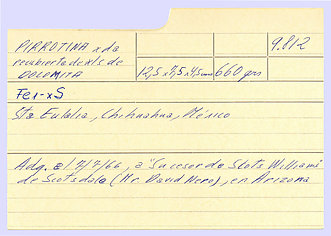 PIRROTINA xda 9.812
recubierta de xls. de
DOLOMITA 12,5 x 7,5 x 4,5 cms 660 grs
Fe1-xS
Sta Eulalia, Chihuahua, México
Adq. el 7/7/66, a "Sucesor de Scots Williams
de Scotsdale (Mr. David Nero), en Arizona